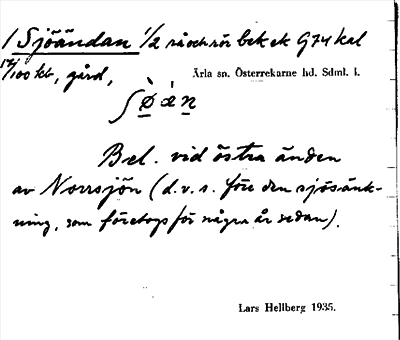 1 Sjöändan 1/2 rå och rör bek ek G74 kal
17/100 kb, gård,
Ärla sn. Österrekarne hd. Sdml. l.
Bel. vid östra änden
av Norrsjön (d.v.s. före den sjösänk-
ning, som företogs för några år sedan).
Lars Hellberg 1935.